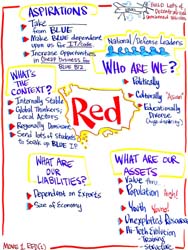 ASPIRATIONS
Take
from BLUE
Make BLUE dependent
upon us for IT/code
Increase opportunities
in cheap business for
BLUE BIZ
BUILD Lots of
Decentralized
National/Defense Leaders
WHO ARE WE?
Politically
Culturally "Asian"
Educationally
Diverse
WHAT'S
THE
CONTEXT?
Internally Stable
Global Thinkers;
Local Actors
Regionally Dominant
Send lots of Students
to soak up BLUE IP
Red
WHAT ARE
OUR
LIABILITIES?
Dependent on Exports
Size of Economy
WHAT ARE OUR
ASSETS
Value thru
Population
Youth
Unexploited Resources
Hi-Tech Education
- Training
- Structure
MOVE 1 RED(1)